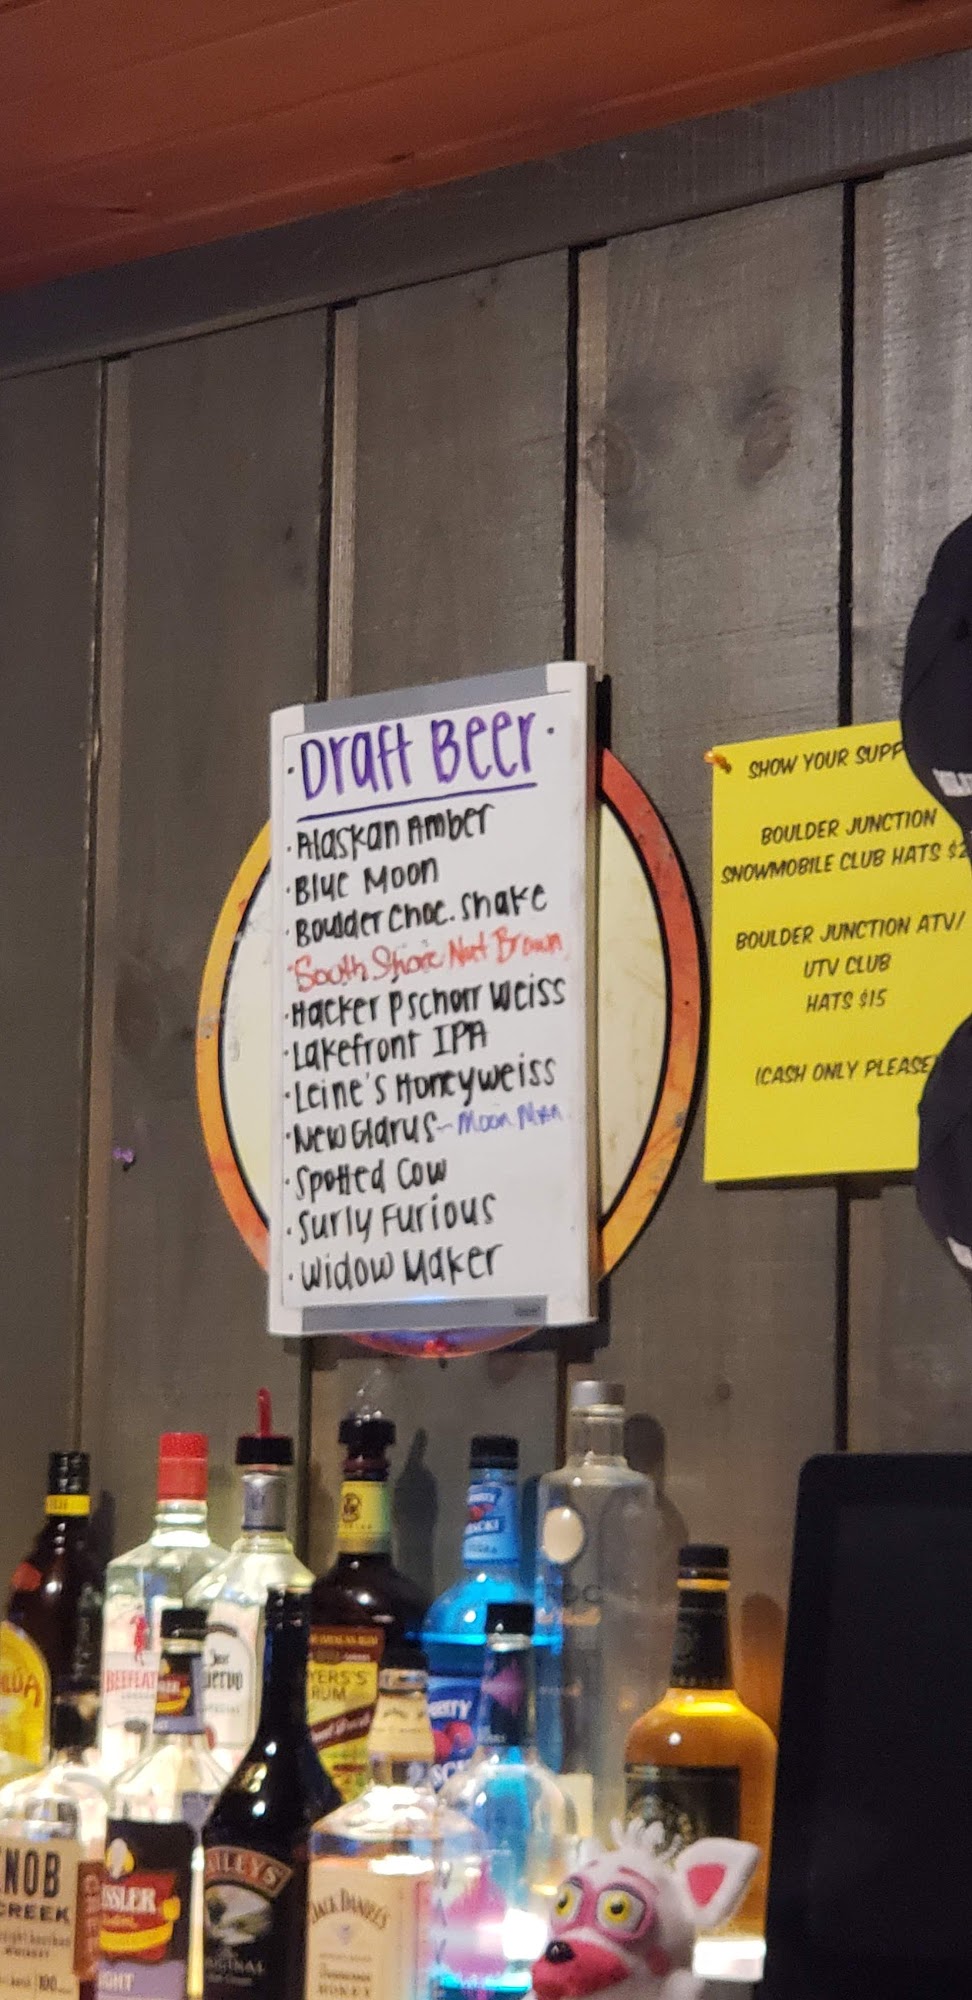 ·Draft Beer·
·Alaskan Amber
·Blue Moon
·Boulder Choc. Shake
·South Shore Nut Brown
·Hacker Pschorr Weiss
·Lakefront IPA
·Leine's Honeyweiss
·New Glarus - Moon Man
·Spotted Cow
·Surly Furious
·Widow Maker
SHOW YOUR
BOULDER JUNCTION
SNOWMOBILE CLUB HATS
BOULDER JUNCTION ATV/
UTV CLUB
HATS $15
(CASH ONLY PLEASE
RUM
KNOB
CREEK
BAILEYS
ORIGINAL
JACK DANIEL'S
HONEY